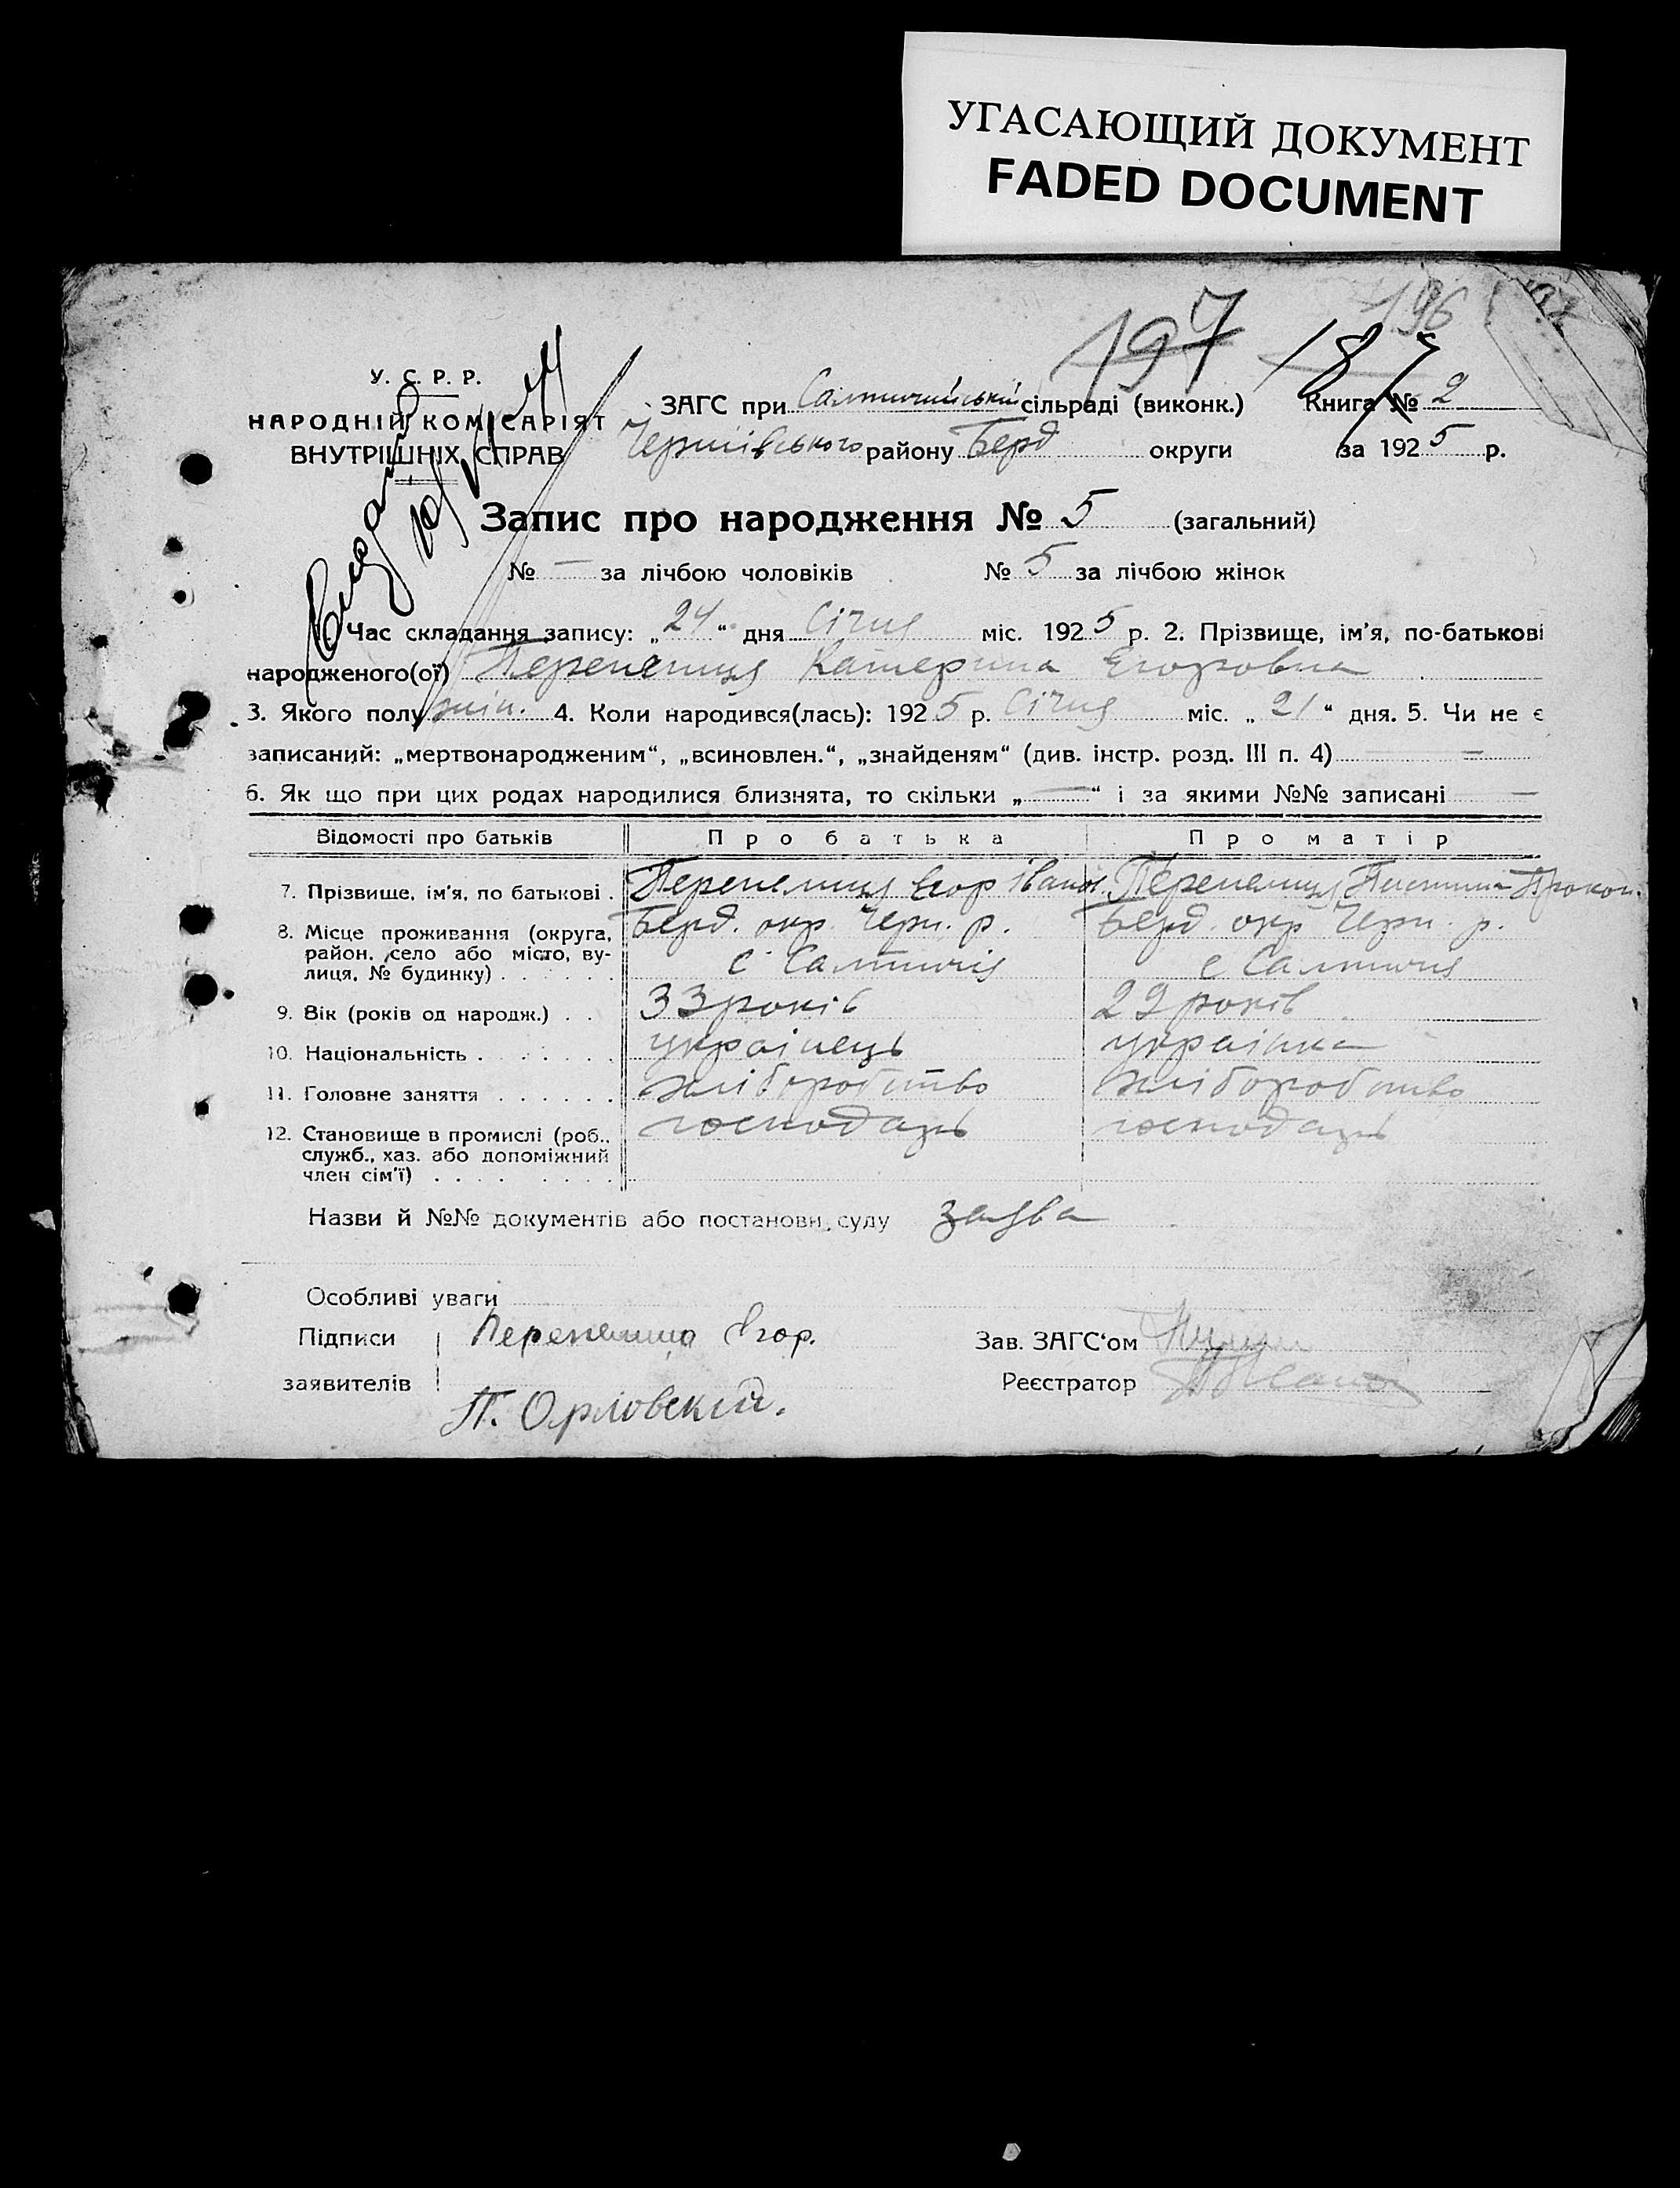 УГАСАЮЩИЙ ДОКУМЕНТ
FADED DOCUMENT
197 187 196
У. С. Р. Р.
НАРОДНІЙ КОМІСАРІЯТ
ВНУТРІШНІХ СПРАВ
ЗАГС при Салтичийській сільраді (виконк.) Книга № 2
Чернівського району Берд округи за 1925 р.
Запис про народження № 5 (загальний)
№ — за лічбою чоловіків № 5 за лічбою жінок
Час складання запису: „24“ дня Січня міс. 1925 р. 2. Прізвище, ім'я, по-батькові
народженого(ої) Перепелиця Катерина Егоровна
3. Якого полу жін. 4. Коли народився(лась): 1925 р. Січня міс. „21“ дня. 5. Чи не є
записаний: „мертвонародженим“, „всиновлен.“, „знайденям“ (див. інстр. розд. III п. 4) —
6. Як що при цих родах народилися близнята, то скільки „—“ і за якими №№ записані —
Відомості про батьків Про батька Про матір
7. Прізвище, ім'я, по батькові . Перепелиця Егор Іванов. Перепелиця Прокоп.
8. Місце проживання (округа, Берд. окр. Черн. р. Берд. окр Черн. р.
район, село або місто, ву-
лиця, № будинку) . . . . . . с Салтичія с Салтичія
9. Вік (років од народж.) . . 33 років 29 років
10. Національність . . . . . . українець українка
11. Головне заняття . . . . . . хліборобство хліборобство
12. Становище в промислі (роб., господарь господарь
служб., хаз. або допоміжний
член сім'ї) . . . . . . . .
Назви й №№ документів або постанови суду заява
Особливі уваги
Підписи Перепелица Егор. Зав. ЗАГС'ом
заявителів Реєстратор
П. Орловский.